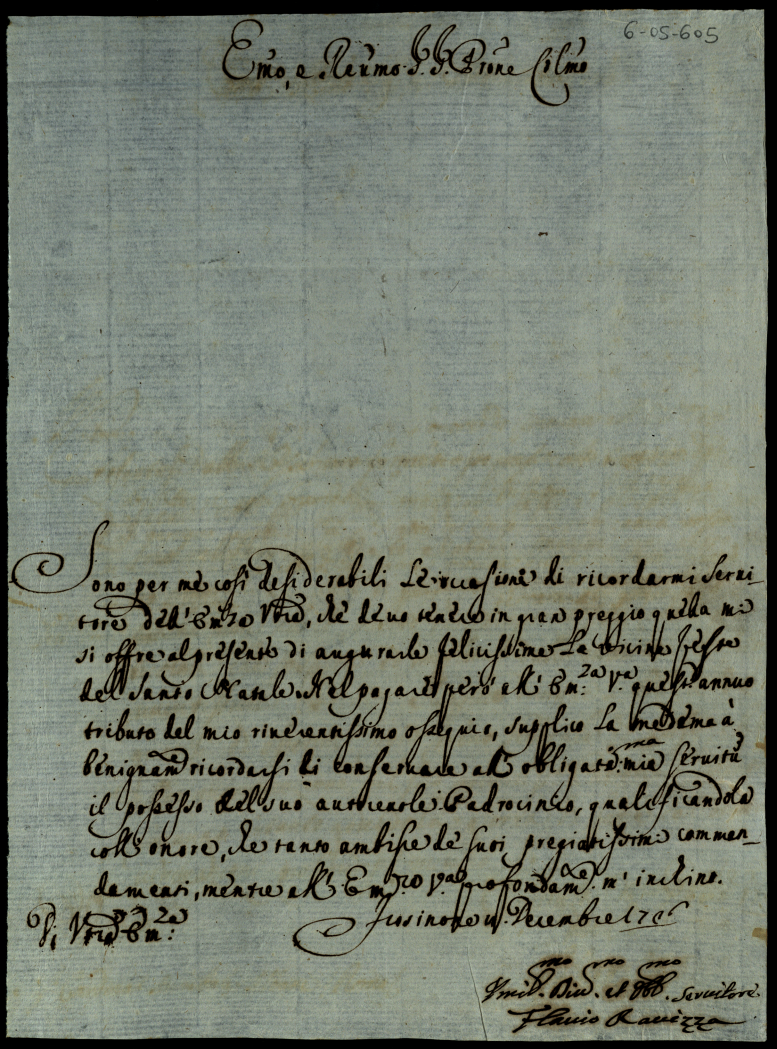 6-05-605
Emo, e Reumo S.r S.r Prone Colmo
Sono per me così desiderabili le occasioni di ricordarmi serui_
tore dell' Emza Vra, che deuo tenere in gran preggio quella mi
si offre al presente di augurarle felicissime la vicine feste
del Santo Natale. Nel pagare però all' Em:za V.a quest'annuo
tributo del mio riuerentissimo ossequio, supplico la medema à
benignam.e ricordarsi di conseruare all' obligatiss:ma mia seruitù
il possesso del suo autoreuole Padrocinio, qualificandola
coll' onore, che tanto ambisce de suoi pregiatissimi comman_
damenti, mentre all' Em:za V.a profondam.e m' inchino.
Di Vra Em:za
Frusinone Decembre 1706
Vmil.mo Diu.mo et Obb.mo Seruitore
Flauio Rauizza